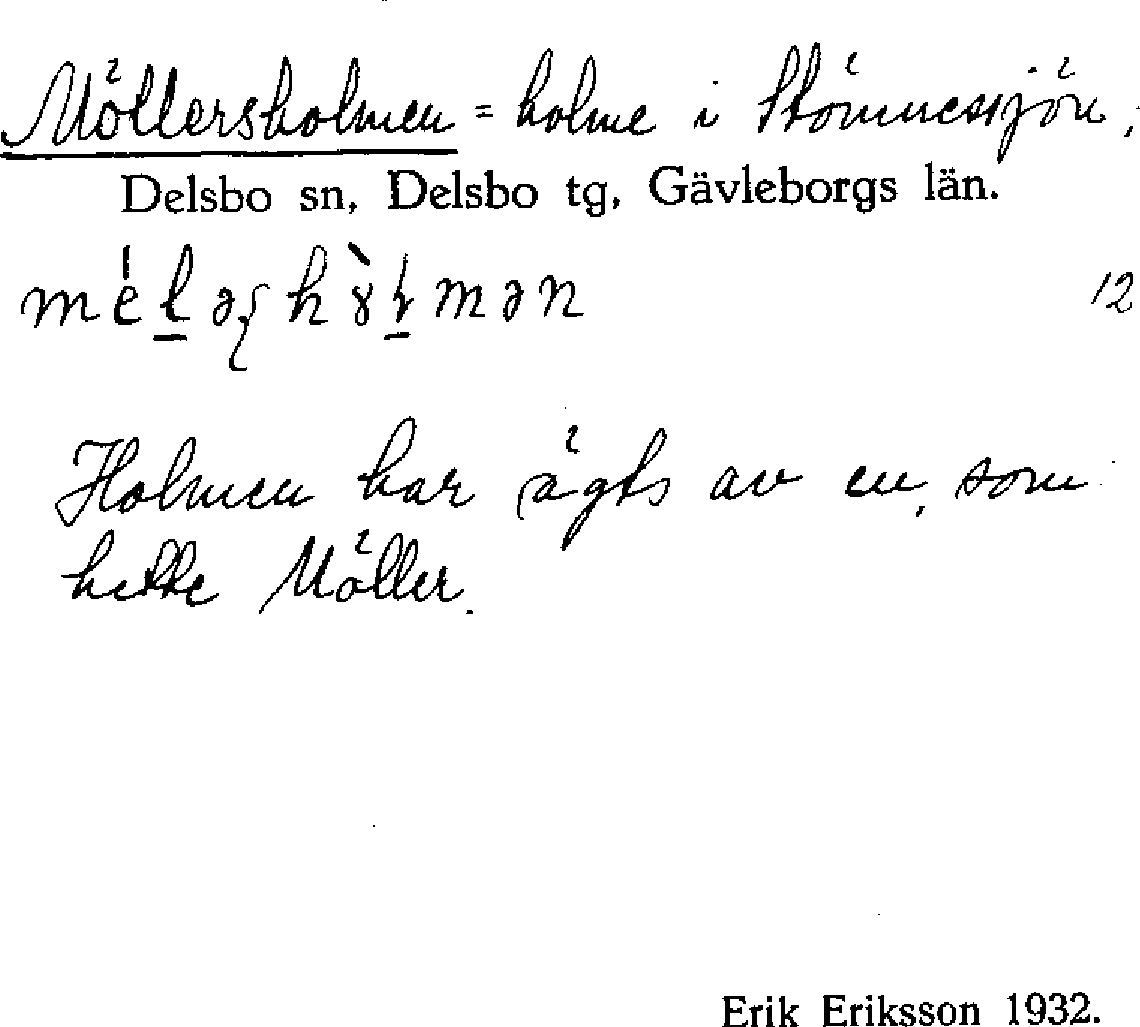 Möllersholmen = holme i Stömnessjön,
Delsbo sn, Delsbo tg, Gävleborgs län.
12
Holmen har ägts av en, som
hette Möller.
Erik Eriksson 1932.